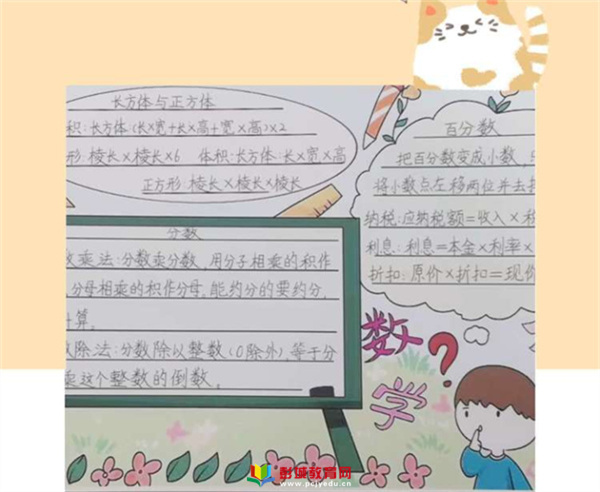 长方体与正方体
积:长方体(长×宽+长×高+宽×高)×2
形:棱长×棱长×6 体积:长方体:长×宽×高
正方形:棱长×棱长×棱长
百分数
把百分数变成小数,
将小数点左移两位并去
纳税:应纳税额=收入×
利息:利息=本金×利率×
折扣:原价×折扣=现
分数
乘法:分数乘分数,用分子相乘的积作
分母相乘的积作分母。能约分的要约分,
算。
除法:分数除以整数(0除外),等于分
乘这个整数的倒数。
数学?
彭城教育网
www.pcjyedu.cn